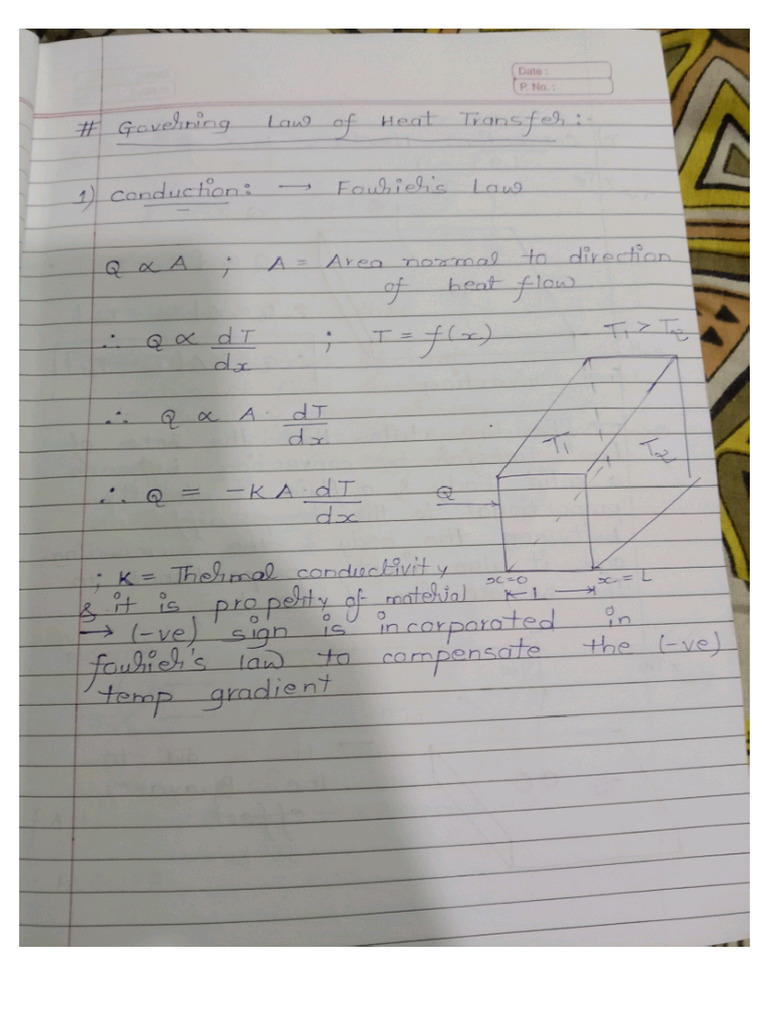 Date :
P. No. :
# Governing Law of Heat Transfer :-
1) Conduction: → Fourier's Law
Q ∝ A ; A = Area normal to direction
of heat flow
∴ Q ∝ dT/dx ; T = f(x) T1 > T2
∴ Q ∝ A · dT/dx
T1 T2
∴ Q = -KA · dT/dx Q
; K = Thermal conductivity x=0 x=L
& it is property of material L
→ (-ve) sign is incorporated in
fourier's law to compensate the (-ve)
temp gradient